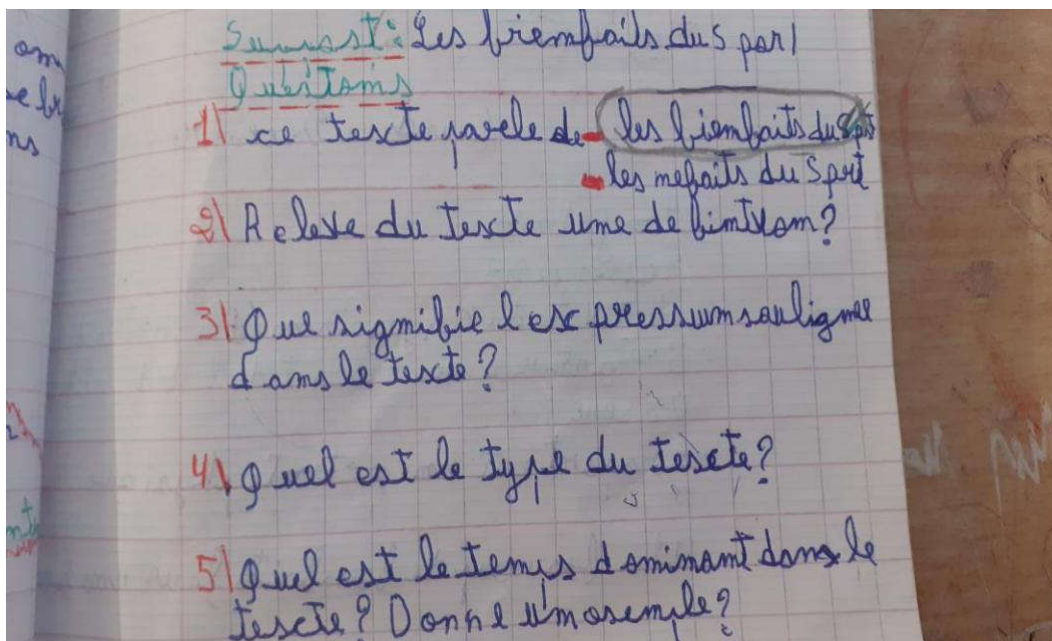 om
Sumast: Les biemfails du S parl
Questoms
se br
ns
1) ce texte parele de - les biemfaits du Spots
- les mefaits du Sport
2) Releve du texte ume de fimitiom?
3) Que sigmifie l ex pressiumsouligmee
dams le texte?
4) Quel est le type du texte?
5) Quel est le temps domimamt dams le
texte? Donne umosemple?